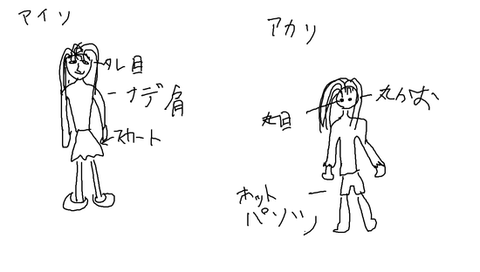 アイリ
タレ目
ナデ肩
スカート
アカリ
丸目
丸がお
ホット
パンツ